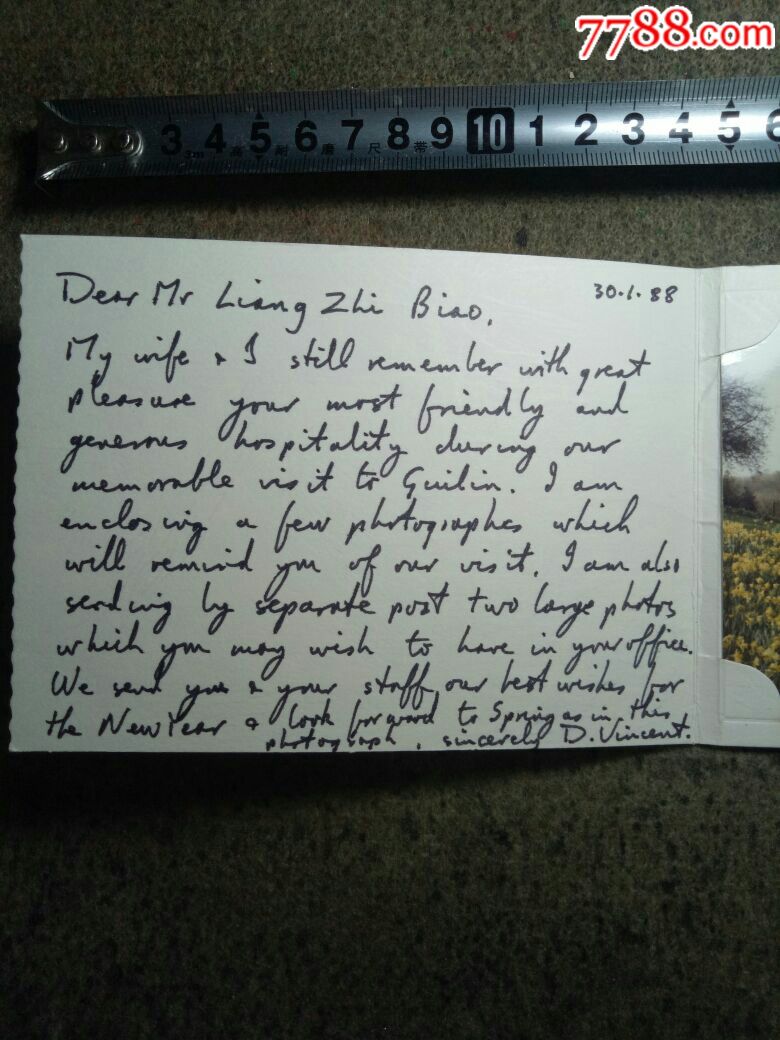 7788.com
3 4 5 6 7 8 9 10 1 2 3 4 5 6
3m 高 耐 磨 尺 带
30.1.88
Dear Mr Liang Zhi Biao,
My wife & I still remember with great
pleasure your most friendly and
generous hospitality during our
memorable visit to Guilin. I am
enclosing a few photographs which
will remind you of our visit. I am also
sending by separate post two large photos
which you may wish to have in your office.
We send you & your staff our best wishes for
the New Year & look forward to Spring as in this
photograph. sincerely D. Vincent.